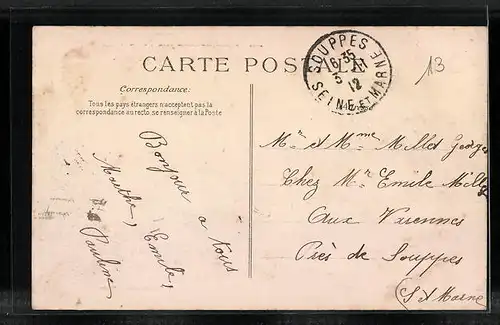 CARTE POS
Correspondance:
Tous les pays étrangers n'acceptent pas la
correspondance au recto, se renseigner à la Poste
SOUPPES
16 35
3
12
SEINE-ET-MARNE
13
Bonjour à tous
Marthe, Emile,
Pauline
Mr et Mme Millet Georges
Chez Mr Emile Millet
Aux Varennes
Près de Souppes
(S et Marne)